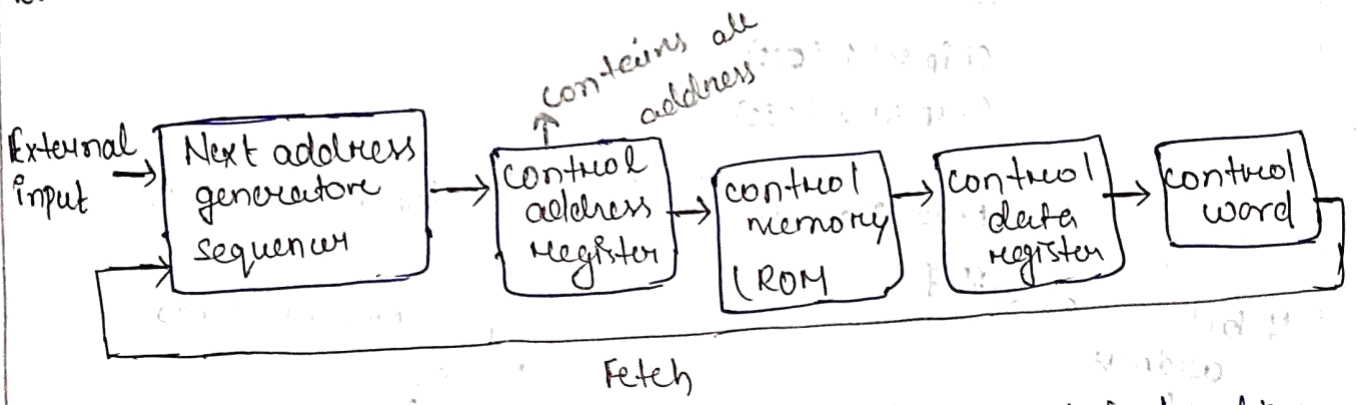 contains all
address
External
input
Next address
generatore
sequencer
control
address
register
control
memory
(ROM
control
data
register
control
word
Fetch